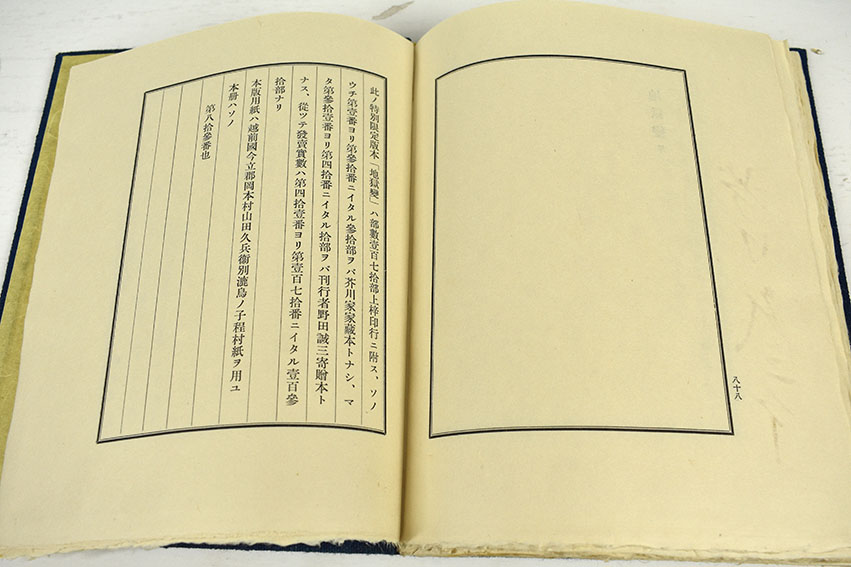 八十八
此ノ特別限定版本「地獄變」ハ部數壹百七拾部上梓印行ニ附ス、ソノ
ウチ第壹番ヨリ第參拾番ニイタル參拾部ヲバ芥川家家藏本トナシ、マ
タ第參拾壹番ヨリ第四拾番ニイタル拾部ヲバ刊行者野田誠三寄贈本ト
ナス、從ツテ發賣實數ハ第四拾壹番ヨリ第壹百七拾番ニイタル壹百參
拾部ナリ
本版用紙ハ越前國今立郡岡本村山田久兵衞別漉鳥ノ子程村紙ヲ用ユ
本册ハソノ
第八拾參番也